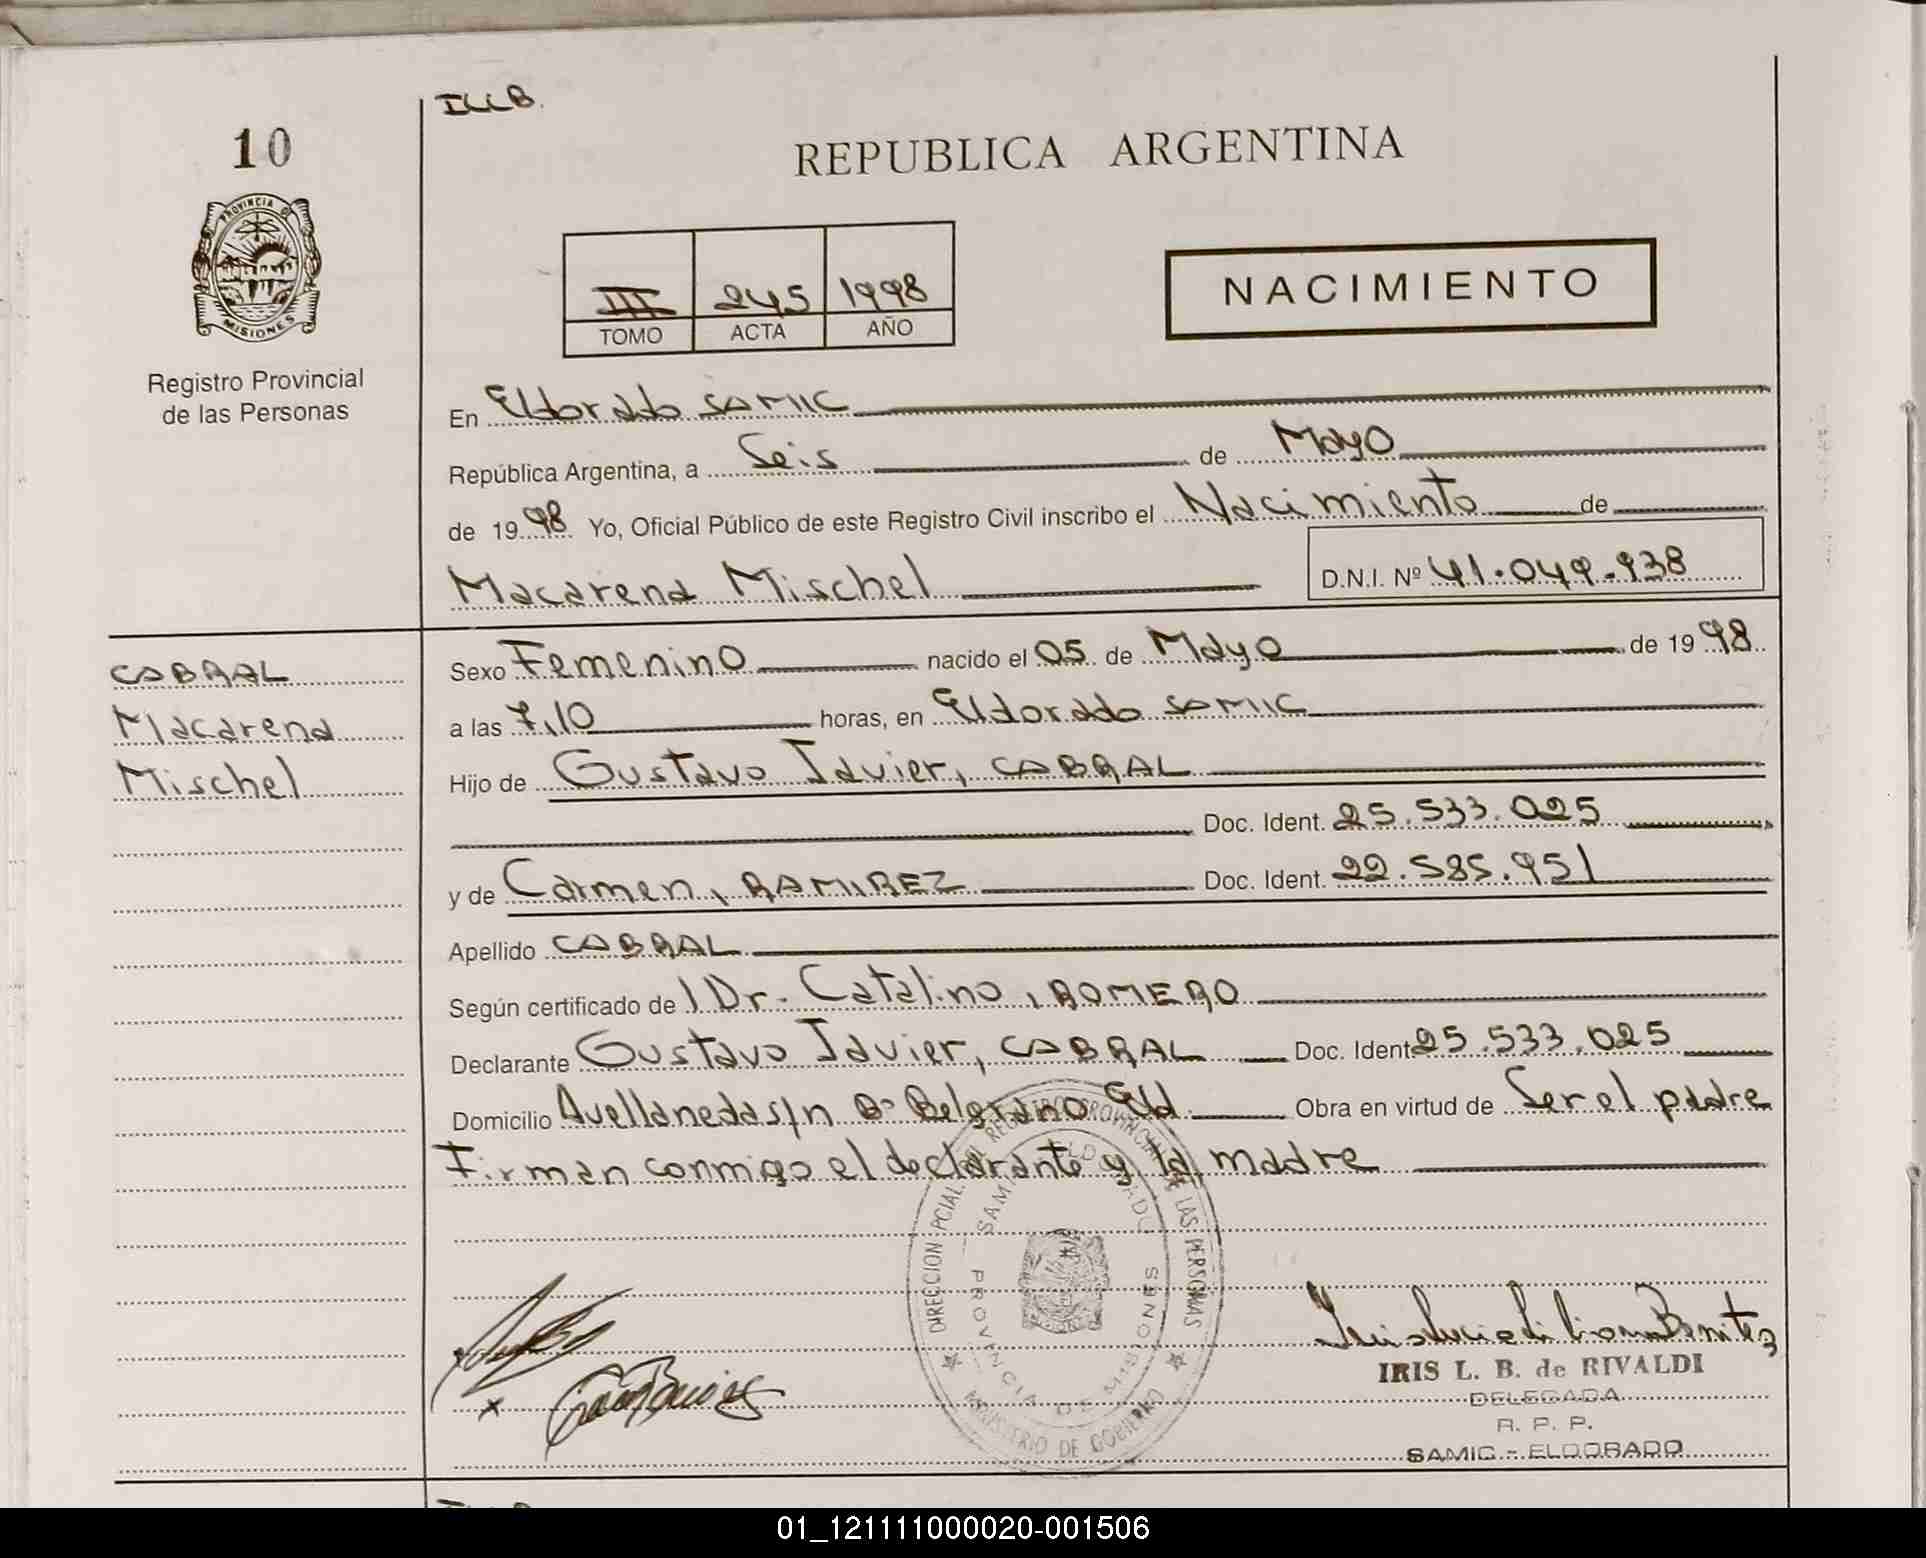 ILLB.
10
REPUBLICA ARGENTINA
PROVINCIA DE
MISIONES
III 245 1998
TOMO ACTA AÑO
NACIMIENTO
Registro Provincial
de las Personas
En Eldorado SAMIC
República Argentina, a Seis de Mayo
de 1998 Yo, Oficial Público de este Registro Civil inscribo el Nacimiento de
Macarena Mischel D.N.I. Nº 41.049.938
CABRAL
Macarena
Mischel
Sexo Femenino nacido el 05 de Mayo de 1998
a las 7,10 horas, en Eldorado SAMIC
Hijo de Gustavo Javier, CABRAL
Doc. Ident. 25.533.025
y de Carmen, RAMIREZ Doc. Ident. 22.585.951
Apellido CABRAL
Según certificado de Dr. Catalino, ROMERO
Declarante Gustavo Javier, CABRAL Doc. Ident. 25.533.025
Domicilio Avellaneda s/n Bº Belgrano Eld. Obra en virtud de Ser el padre
Firman conmigo el declarante y la madre
DIRECCION PCIAL. DEL REGISTRO PROVINCIAL DE LAS PERSONAS
SAMIC ELDORADO
PROVINCIA DE MISIONES
MINISTERIO DE GOBIERNO
IRIS L. B. de RIVALDI
DELEGADA
R. P. P.
SAMIC - ELDORADO
01_121111000020-001506